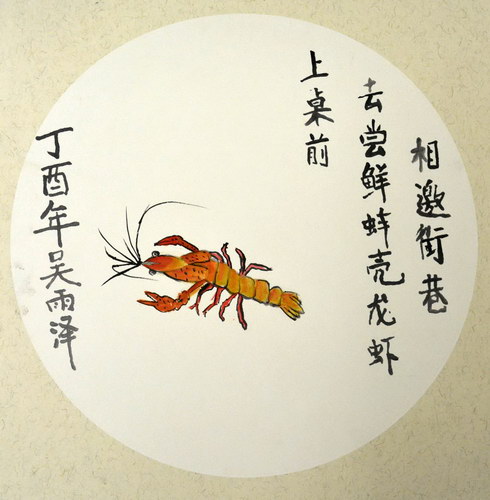 相邀街巷
去尝鲜蚌壳龙虾
上桌前
丁酉年吴雨泽